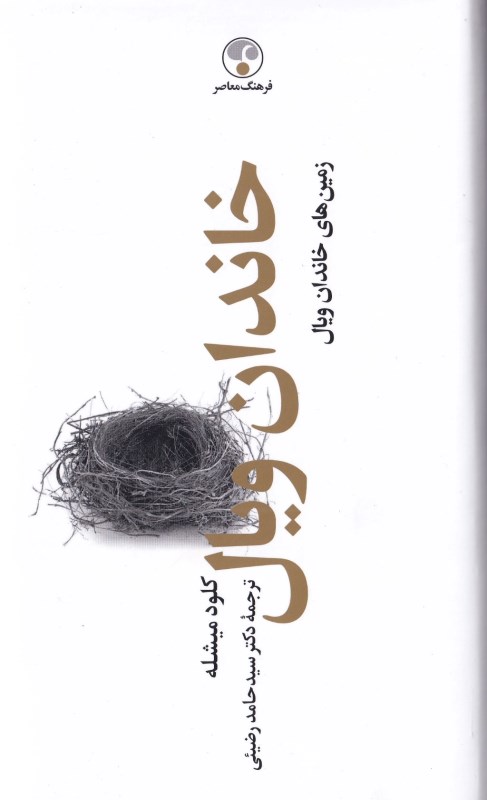 فرهنگ معاصر
خاندان ویال
زمین‌های خاندان ویال
کلود میشله
ترجمهٔ دکتر سید حامد رضیئی